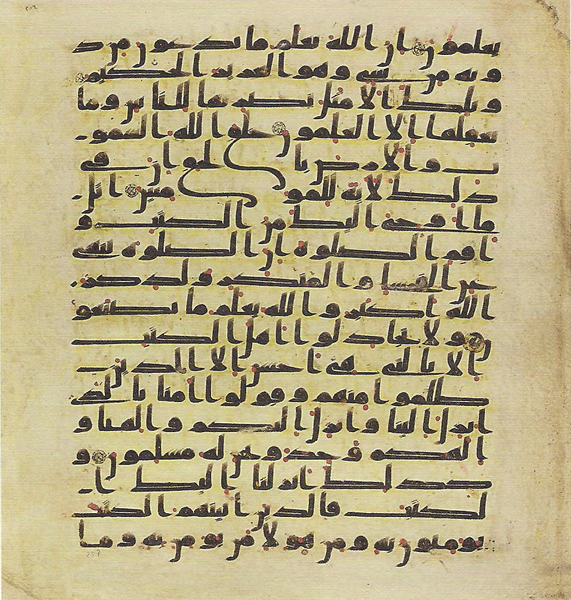 يعلمون ان الله يعلم ما يدعون من د
ونه من شى وهو العزيز الحكيم
وتلك الامثل نضربها للناس وما
يعقلها الا العلمون خلق الله السمو
ت والارض بالحق ان فى
ذلك لاية للمومنين اتل
ما اوحى اليك من الكتب و
اقم الصلوة ان الصلوة تنهى
عن الفحشا والمنكر ولذكر
الله اكبر والله يعلم ما تصنعو
ن ولا تجادلوا اهل الكتب
الا بالتى هى احسن الا الذين
ظلموا منهم وقولوا امنا بالذى
انزل الينا وانزل اليكم والهنا و
الهكم وحد ونحن له مسلمون و
كذلك انزلنا اليك ا
لكتب فالذين اتينهم الكتب
يومنون به ومن هولا من يومن به وما